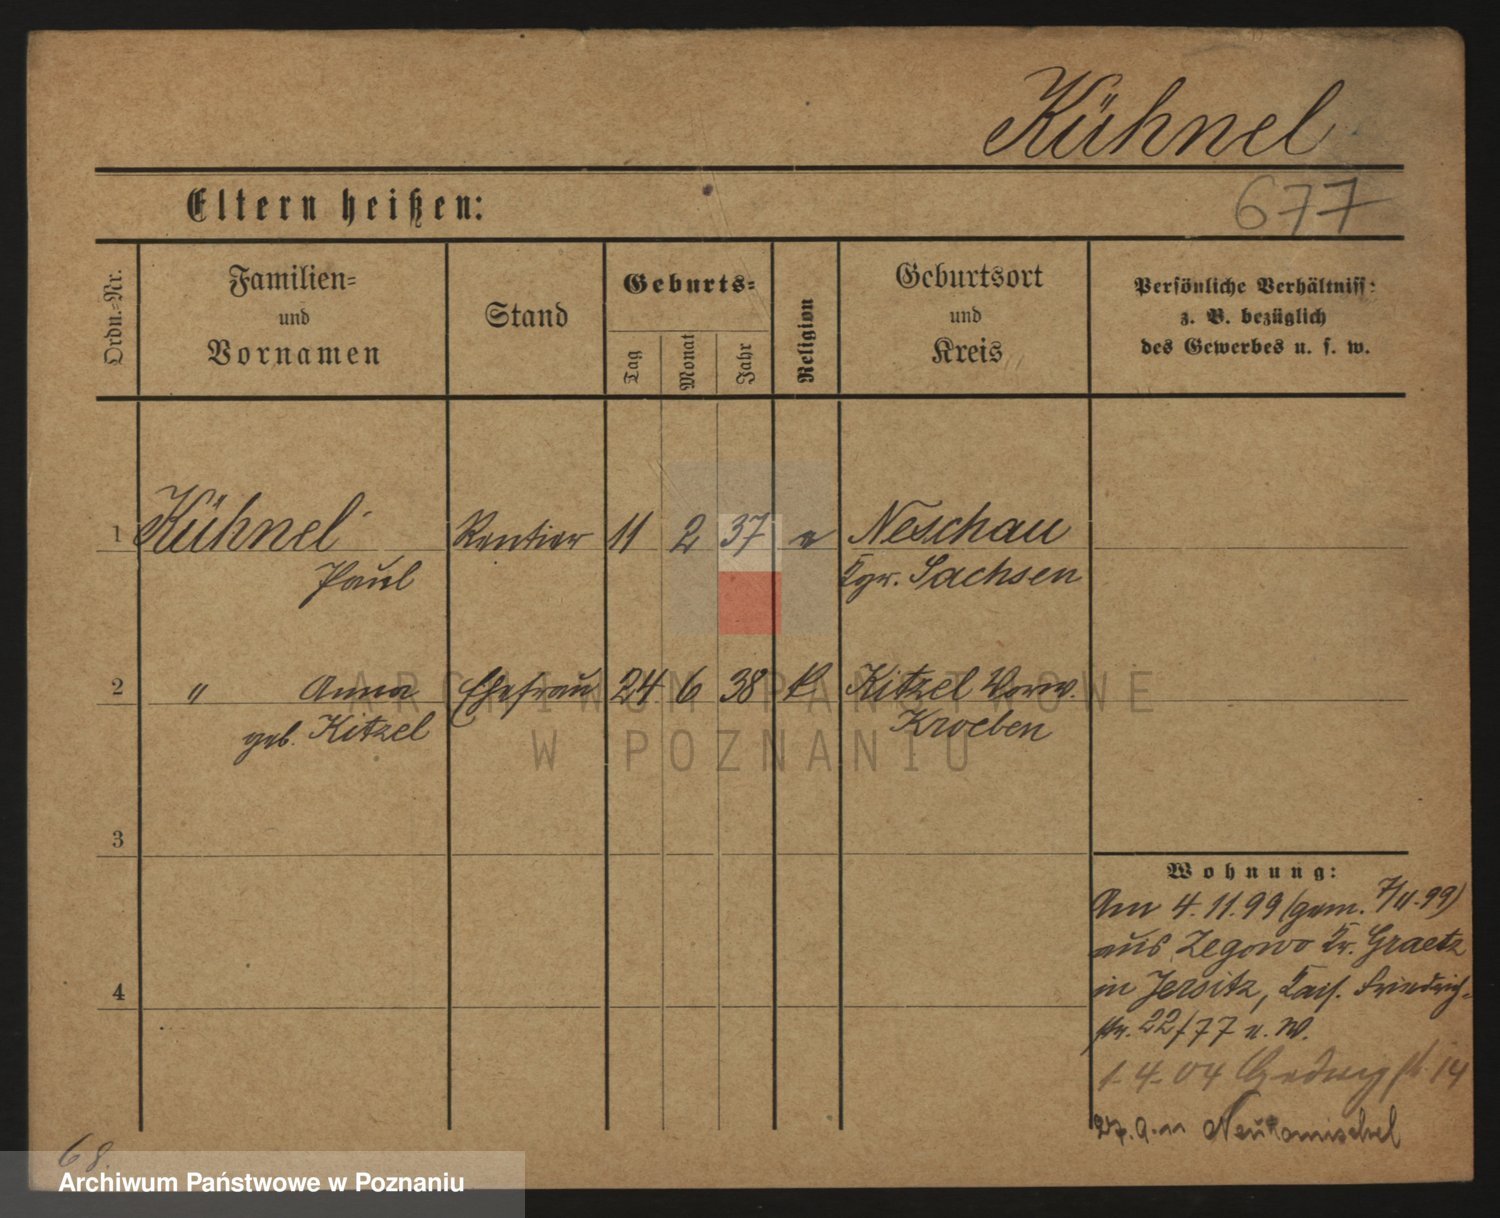 Kühnel
677
Eltern heißen:
Ordn.-Nr.
Familien-
und
Vornamen
Stand
Geburts-
Tag
Monat
Jahr
Religion
Geburtsort
und
Kreis
Persönliche Verhältniss:
z. B. bezüglich
des Gewerbes u. s. w.
1 Kühnel Rentier 11 2 37 e Neschau
Paul Kgr. Sachsen
2 " Anna Ehefrau 24 6 38 k Kitzel Vorw.
geb. Kitzel Kroeben
3
4
Wohnung:
Am 4.11.99 (gem. 7/11.99)
aus Zegowo Kr. Graetz
in Jersitz, Kais. Friedrich-
str. 22/77 n. W.
1.4.04 Hedwigstr. 14
Neutomischel
68.
ARCHIWUM PAŃSTWOWE
W POZNANIU
Archiwum Państwowe w Poznaniu